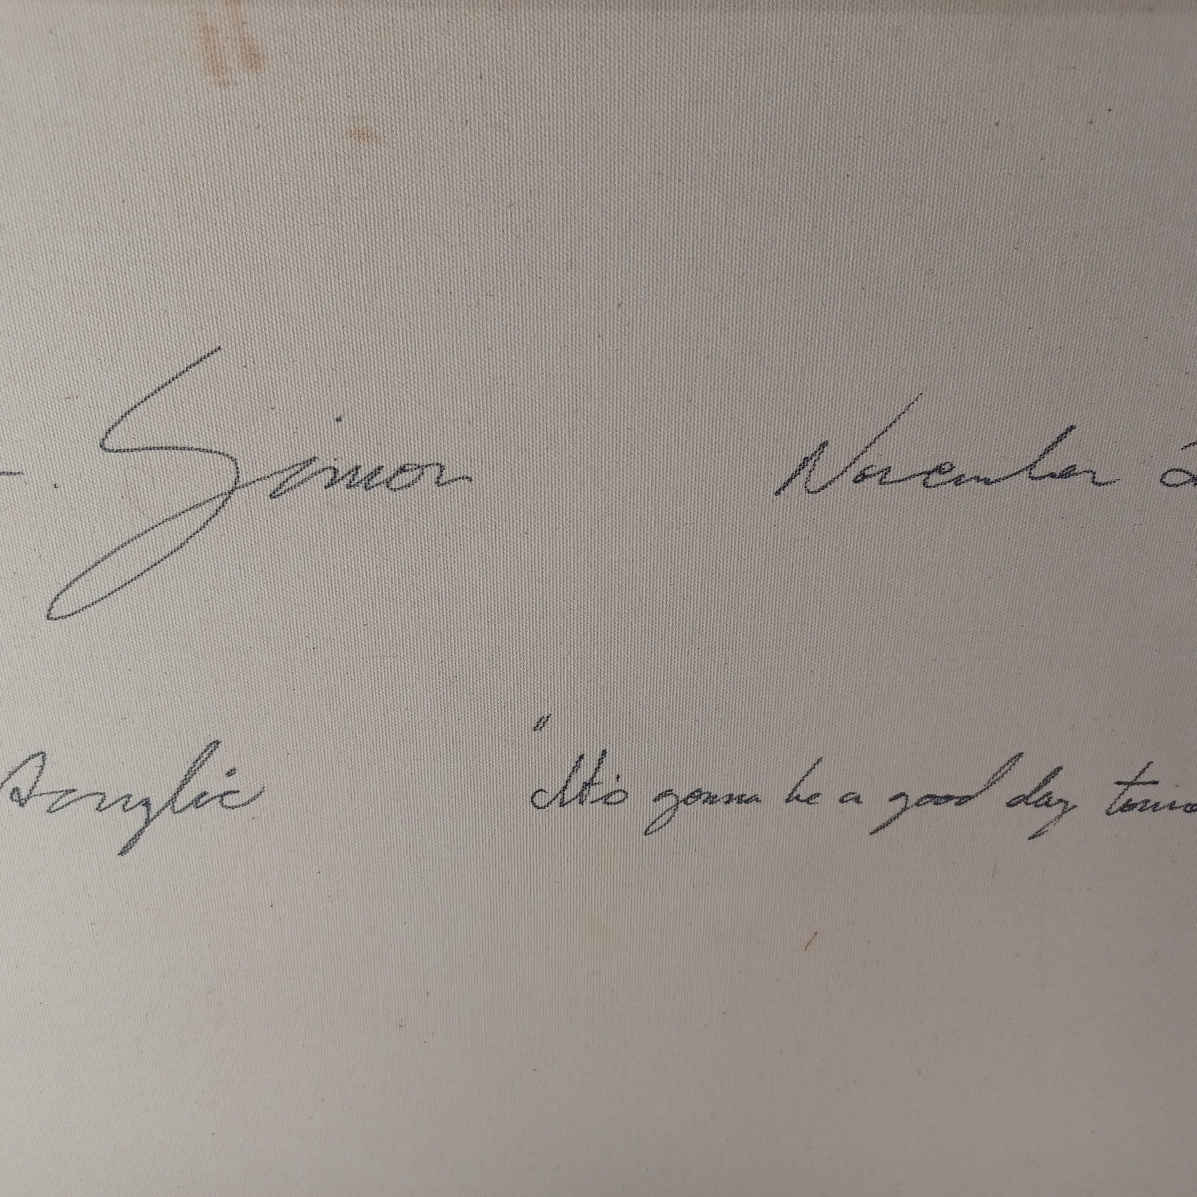 Simon November
Acrylic "It's gonna be a good day